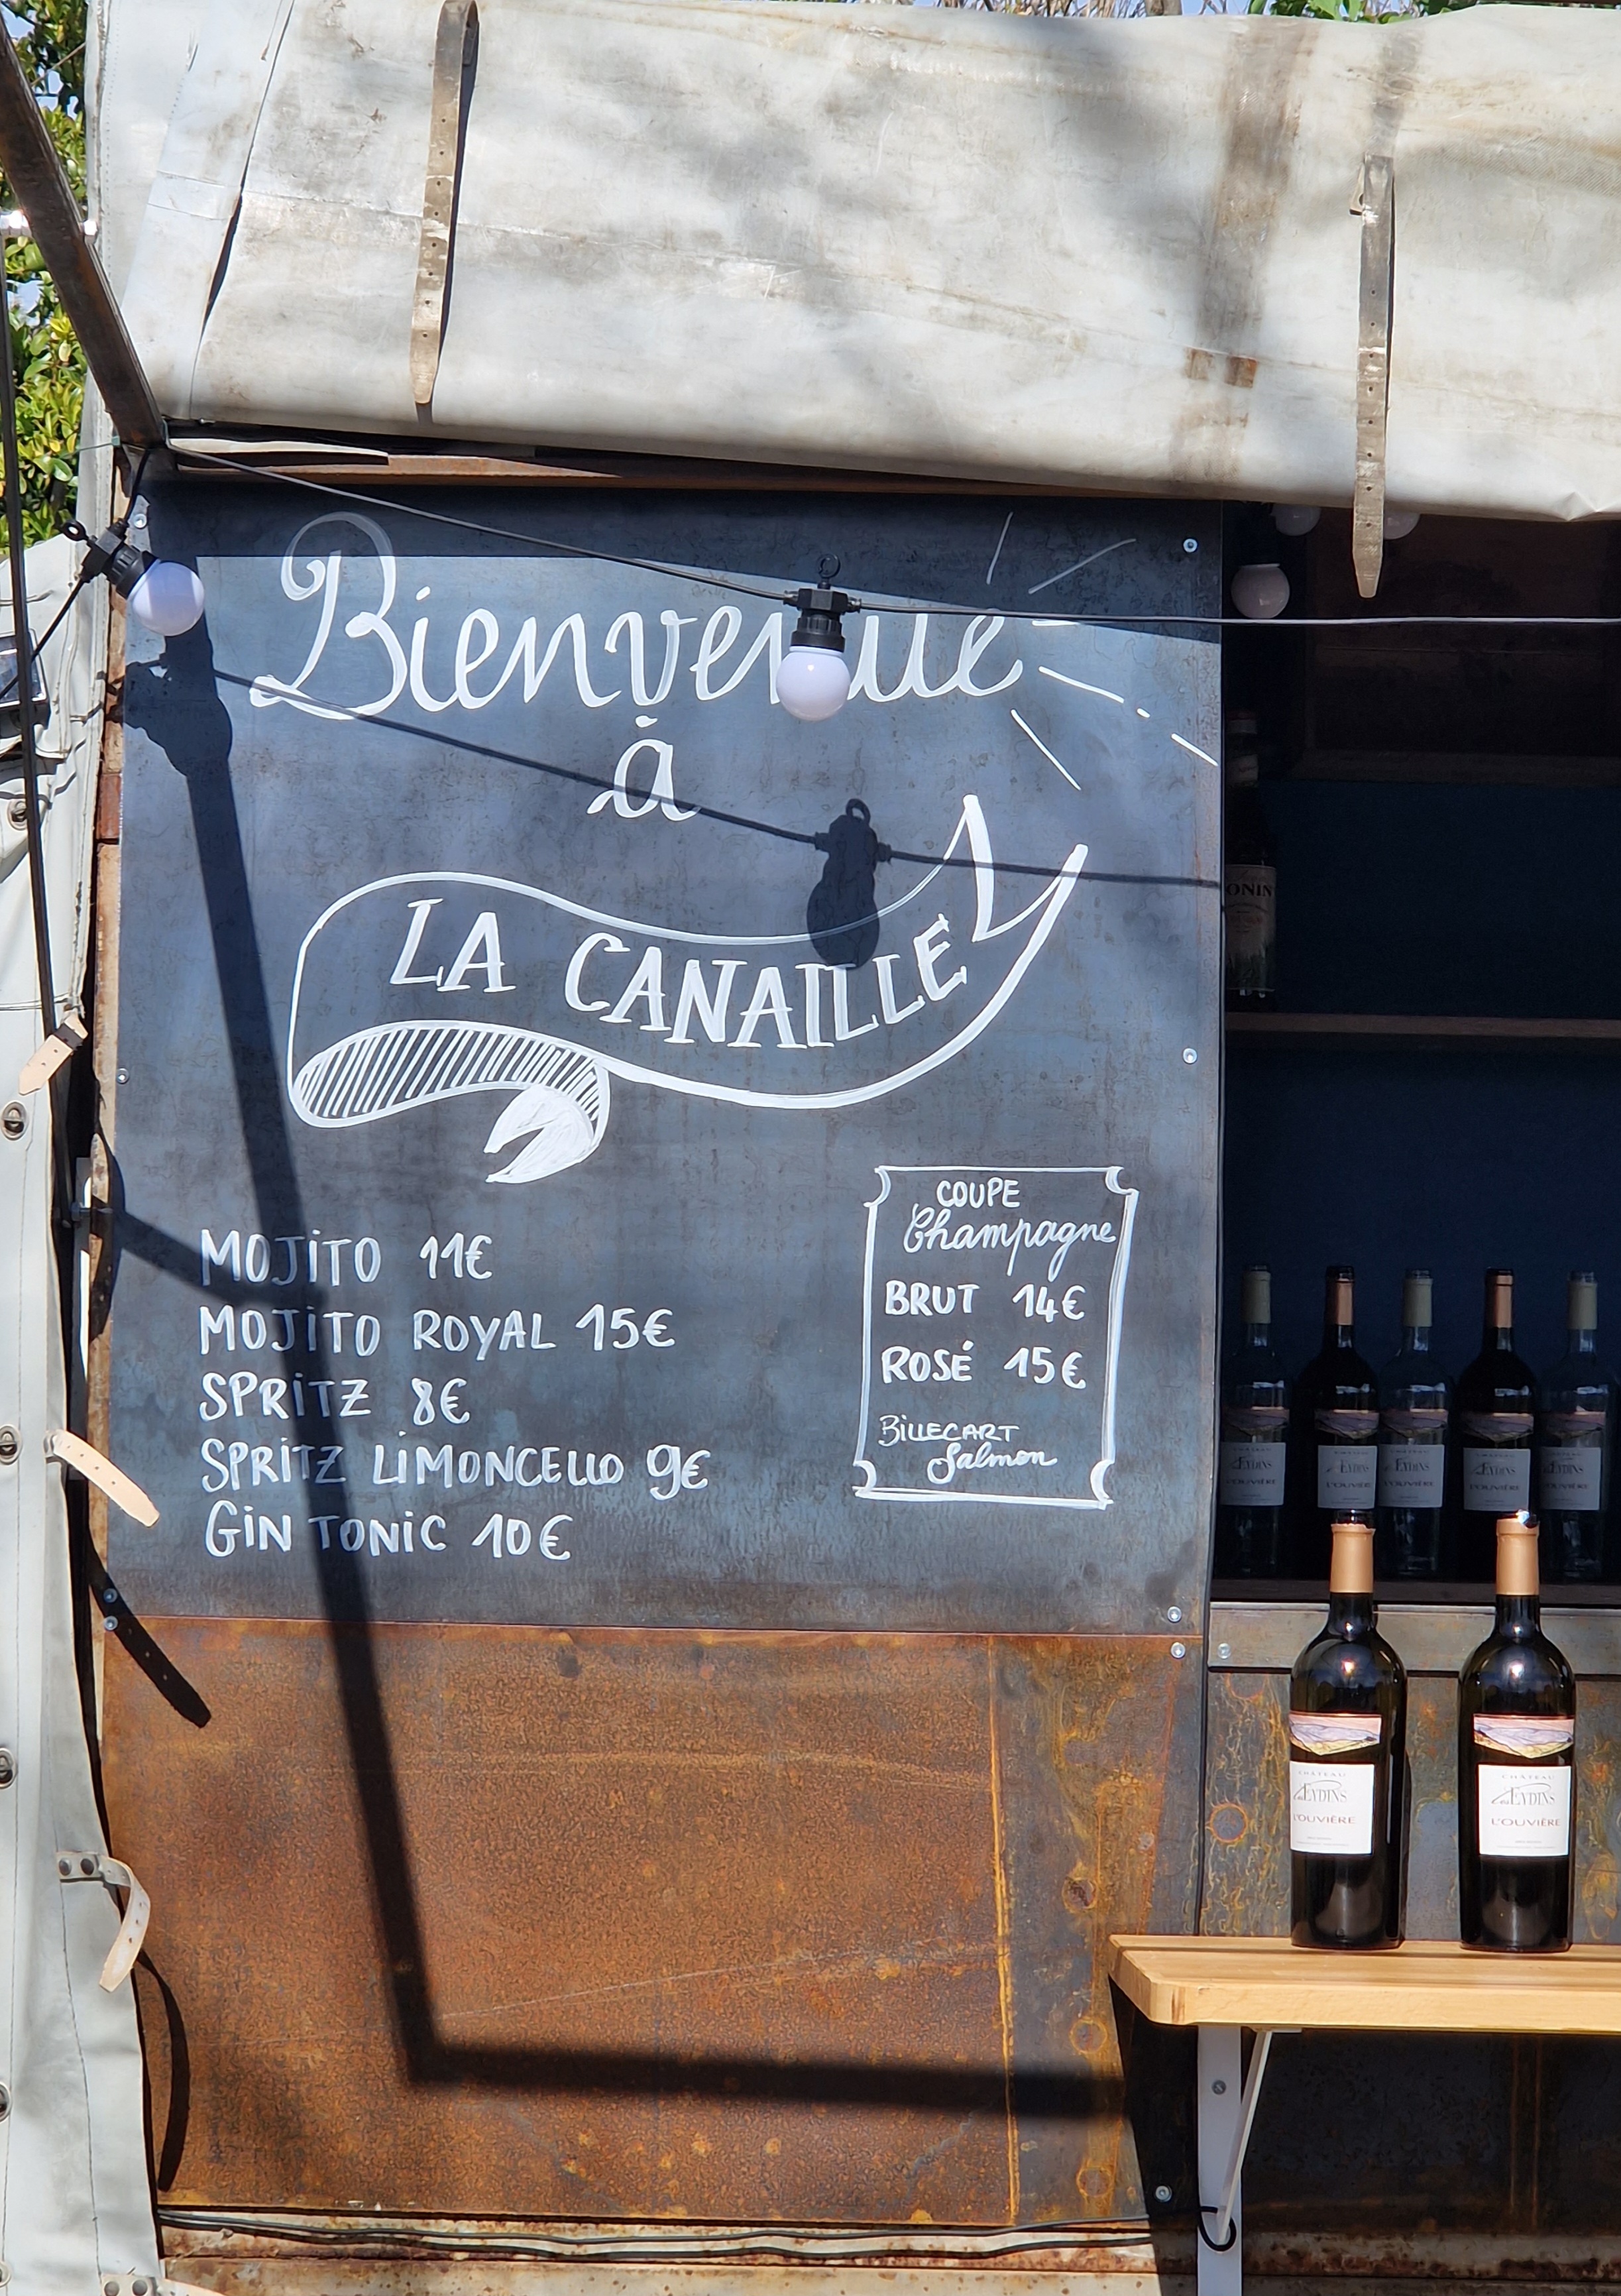 Bienvenue
à
LA CANAILLE
MOJITO 11€
MOJITO ROYAL 15€
SPRITZ 8€
SPRITZ LIMONCELLO 9€
GIN TONIC 10€
COUPE
Champagne
BRUT 14€
ROSÉ 15€
BILLECART
Salmon
ONIN
CHÂTEAU
EYDINS
L'OUVIÈRE
CHÂTEAU
EYDINS
L'OUVIÈRE